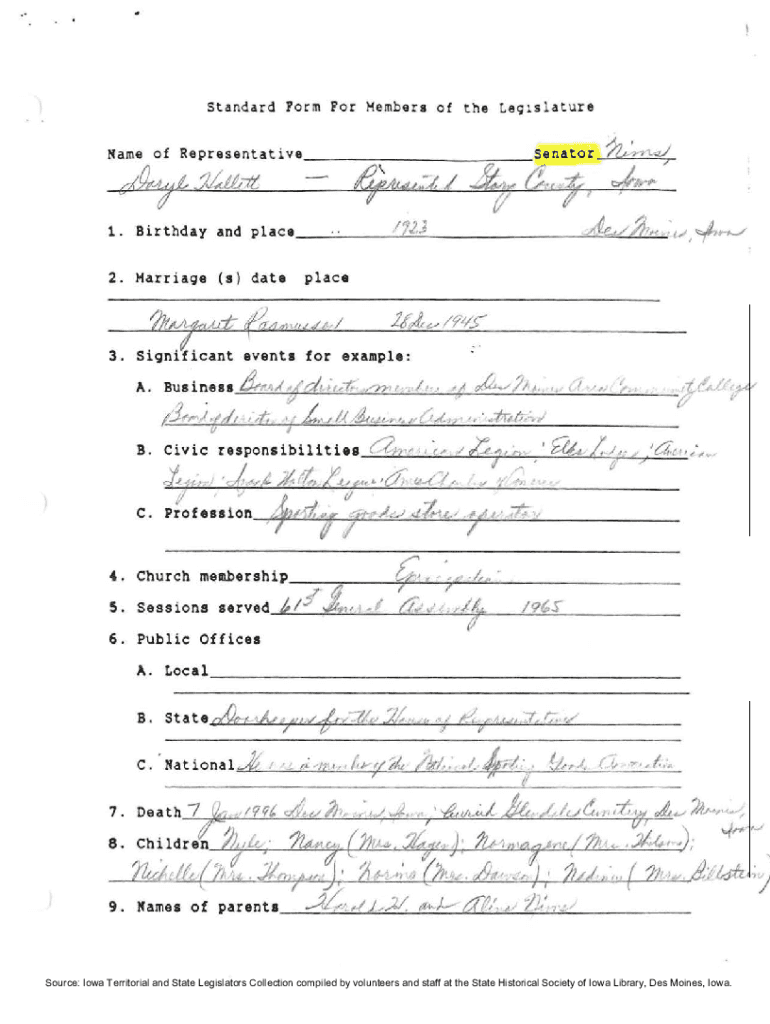 Standard Form For Members of the Legislature
Name of Representative Senator Nims,
Daryl Hallett — Represented Story County, Iowa
1. Birthday and place 1923 Des Moines, Iowa
2. Marriage (s) date place
Margaret Rasmussen 28 Dec 1945
3. Significant events for example:
A. Business Board of directors member of Des Moines Area Community College
Board of directors of Small Business Administration
B. Civic responsibilities American Legion; Elks Lodge; American
Legion; Izaak Walton League; Ames Chamber of Commerce
C. Profession Sporting goods store operator
4. Church membership Episcopalian
5. Sessions served 61st General Assembly 1965
6. Public Offices
A. Local
B. State Doorkeeper for the House of Representatives
C. National He was a member of the National Sporting Goods Association
7. Death 7 Jan 1996 Des Moines, Iowa; buried Glendale Cemetery Des Moines,
Iowa
8. Children Nyle; Nancy (Mrs. Hagen); Normagene (Mrs.
Nichelle (Mrs. Thompson); Norma (Mrs. Dawson); Nadine (Mrs. Billstein)
9. Names of parents Harold H. and Alina Nims
Source: Iowa Territorial and State Legislators Collection compiled by volunteers and staff at the State Historical Society of Iowa Library, Des Moines, Iowa.